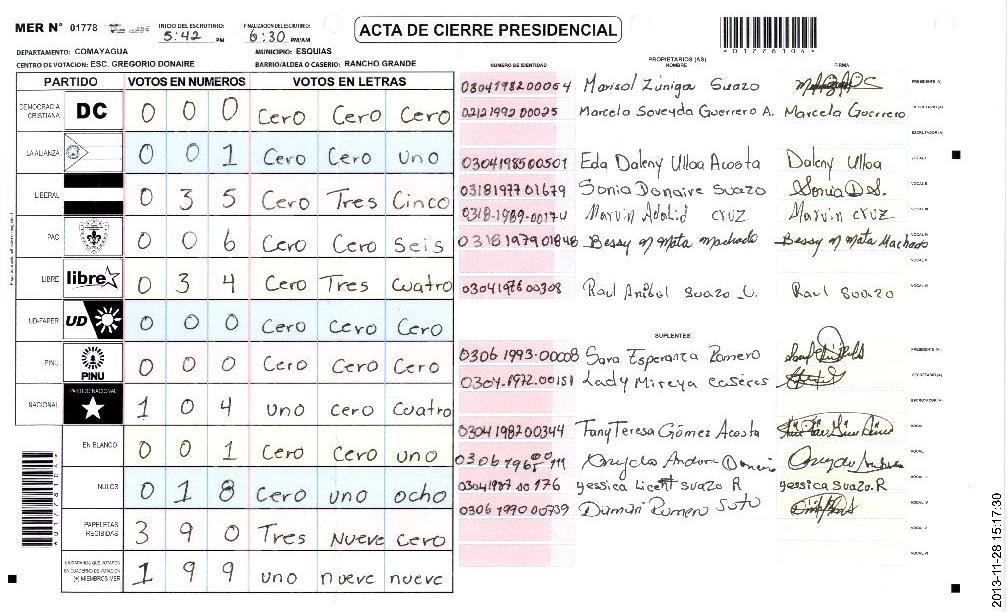 MER N° 01778 INICIO DEL ESCRUTINIO: 5:42 PM FINALIZACION DEL ESCRUTINIO: 6:30 PM/AM
ACTA DE CIERRE PRESIDENCIAL
DEPARTAMENTO: COMAYAGUA MUNICIPIO: ESQUIAS
CENTRO DE VOTACION: ESC. GREGORIO DONAIRE BARRIO/ALDEA O CASERIO: RANCHO GRANDE
PARTIDO VOTOS EN NUMEROS VOTOS EN LETRAS
DEMOCRACIA CRISTIANA DC 0 0 0 Cero Cero Cero
LA ALIANZA 0 0 1 Cero Cero uno
LIBERAL 0 3 5 Cero Tres Cinco
PAC 0 0 6 Cero Cero Seis
LIBRE libre 0 3 4 Cero Tres Cuatro
UD-FAPER UD 0 0 0 Cero Cero Cero
PINU PINU 0 0 0 Cero Cero Cero
NACIONAL PARTIDO NACIONAL 1 0 4 uno cero Cuatro
EN BLANCO 0 0 1 Cero Cero uno
NULOS 0 1 8 Cero uno ocho
PAPELETAS RECIBIDAS 3 9 0 Tres Nueve Cero
CIUDADANOS QUE VOTARON EN CUADERNO DE VOTACION (+) MIEMBROS MER 1 9 9 uno nueve nueve
PROPIETARIOS (AS)
NUMERO DE IDENTIDAD NOMBRE FIRMA
0304198200064 Marisol Zúniga Suazo PRESIDENTE (A)
0212199200025 Marcela Soveyda Guerrero A. Marcela Guerrero SECRETARIO (A)
ESCRUTADOR (A)
0304198500501 Eda Daleny Ulloa Acosta Daleny Ulloa VOCAL I
0318197701679 Sonia Donaire Suazo Sonia D S. VOCAL II
0318-1989-00174 Marvin Adalid cruz Marvin cruz VOCAL III
0318197901848 Bessy M Mata Machado Bessy M Mata Machado VOCAL IV
VOCAL V
0304197600308 Raul Anibal Suazo U. Raul Suazo VOCAL VI
SUPLENTES
0306 1993-00008 Sara Esperanza Romero PRESIDENTE (A)
0304-1972-00151 Lady Mireya caseres SECRETARIO (A)
ESCRUTADOR (A)
0304198200344 Fany Teresa Gómez Acosta VOCAL I
VOCAL II
yessica Suazo R yessica Suazo.R VOCAL III
0306199000739 Romero Soto VOCAL IV
VOCAL V
VOCAL VI
2013-11-28 15:17:30